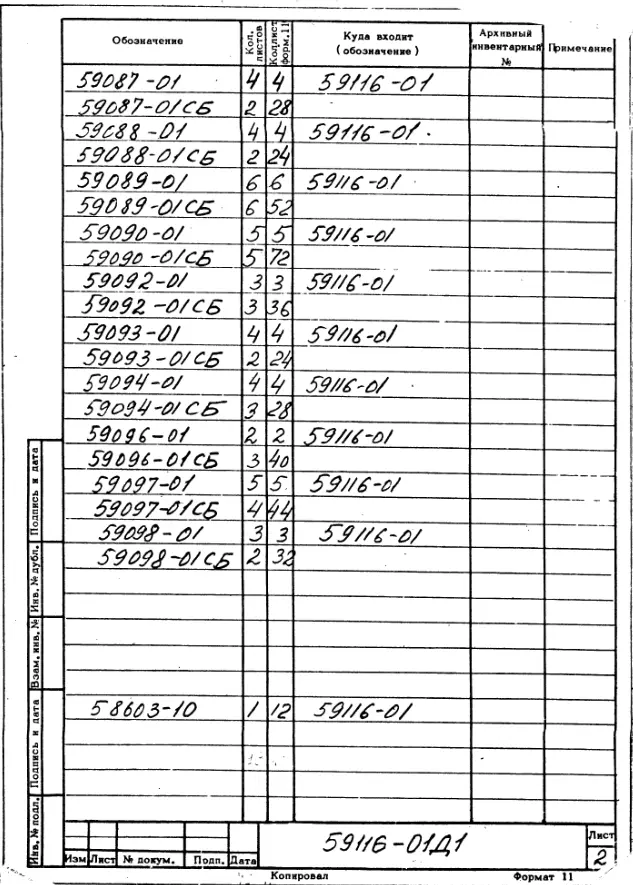 Обозначение Кол. листов Кол. лист форм. 11 Куда входит (обозначение) Архивный инвентарный № Примечание
59087-01 4 4 59116-01
59087-01СБ 2 28
59088-01 4 4 59116-01
59088-01СБ 2 24
59089-01 6 6 59116-01
59089-01СБ 6 52
59090-01 5 5 59116-01
59090-01СБ 5 72
59092-01 3 3 59116-01
59092-01СБ 3 36
59093-01 4 4 59116-01
59093-01СБ 2 24
59094-01 4 4 59116-01
59094-01СБ 3 28
59096-01 2 2 59116-01
59096-01СБ 3 40
59097-01 5 5 59116-01
59097-01СБ 4 44
59098-01 3 3 59116-01
59098-01СБ 2 32
58603-10 1 12 59116-01
Подпись и дата
Инв. № дубл.
Взам. инв. №
Подпись и дата
Инв. № подл.
Изм Лист № докум. Подп. Дата
59116-01Д1
Лист
2
Копировал Формат 11